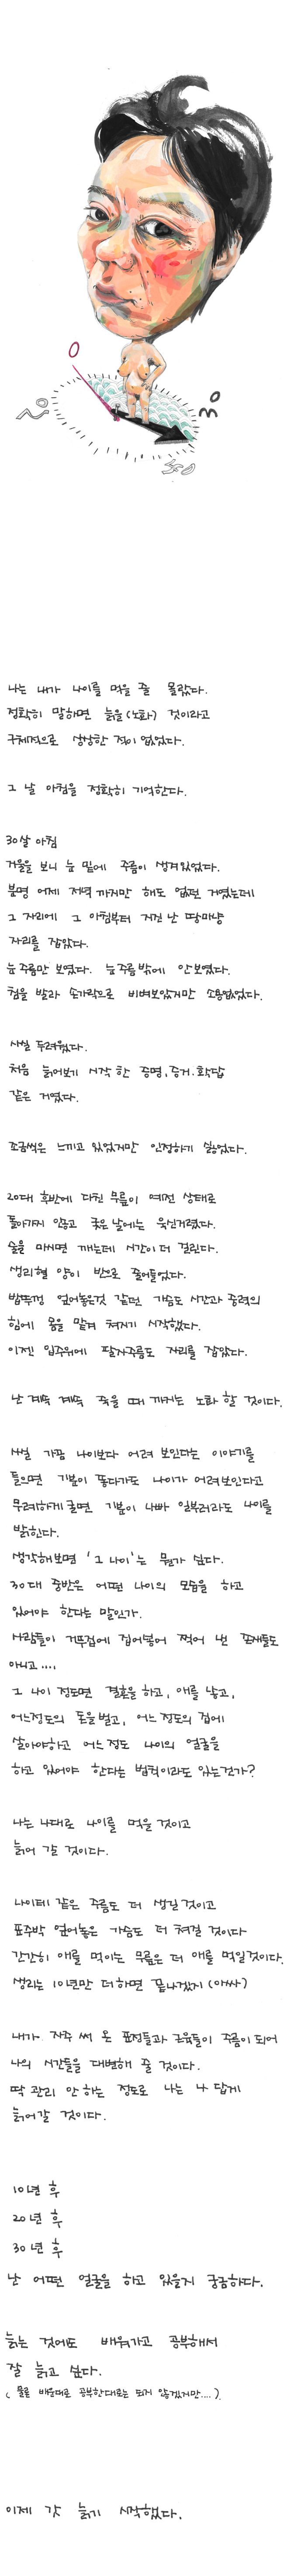 0
20
30
40
나는 내가 나이를 먹을 줄 몰랐다.
정확히 말하면 늙을(노화) 것이라고
구체적으로 상상한 적이 없었다.
그 날 아침을 정확히 기억한다.
30살 아침
거울을 보니 눈 밑에 주름이 생겨있었다.
분명 어제 저녁 까지만 해도 없던 거였는데
그 자리에 그 아침부터 지진 난 땅마냥
자리를 잡았다.
눈주름만 보였다. 눈주름밖에 안보였다.
침을 발라 손가락으로 비벼보았지만 소용없었다.
사실 두려웠다.
처음 늙어보기 시작 한 증명, 증거, 화답
같은 거였다.
조금씩은 느끼고 있었지만 인정하기 싫었다.
20대 후반에 다친 무릎이 예전 상태로
돌아가지 않고 궂은 날에는 욱신거렸다.
술을 마시면 깨는데 시간이 더 걸린다.
생리혈 양이 반으로 줄어들었다.
밥뚜껑 엎어놓은것 같던 가슴도 시간과 중력의
힘에 몸을 맡겨 쳐지기 시작했다.
이젠 입주위에 팔자주름도 자리를 잡았다.
난 계속 계속 죽을 때 까지는 노화 할 것이다.
사실 가끔 나이보다 어려 보인다는 이야기를
들으면 기분이 좋다가도 나이가 어려보인다고
무례하게 굴면 기분이 나빠 일부러라도 나이를
밝힌다.
생각해보면 '그 나이'는 뭔가 싶다.
30대 중반은 어떤 나이의 모습을 하고
있어야 한다는 말인가.
사람들이 거푸집에 집어넣어 찍어 낸 존재들도
아니고....
그 나이 정도면 결혼을 하고, 애를 낳고,
어느정도의 돈을 벌고, 어느 정도의 집에
살아야하고 어느 정도 나이의 얼굴을
하고 있어야 한다는 법칙이라도 있는건가?
나는 나대로 나이를 먹을 것이고
늙어 갈 것이다.
나이테 같은 주름도 더 생길 것이고
표주박 엎어놓은 가슴도 더 쳐질 것이다
간간히 애를 먹이는 무릎은 더 애를 먹일것이다.
생리는 10년만 더하면 끝나겠지 (아싸)
내가 자주 써 온 표정들과 근육들이 주름이 되어
나의 시간들을 대변해 줄 것이다.
딱 관리 안 하는 정도로 나는 나 답게
늙어갈 것이다.
10년 후
20년 후
30년 후
난 어떤 얼굴을 하고 있을지 궁금하다.
늙는 것에도 배워가고 공부해서
잘 늙고 싶다.
( 물론 배운대로 공부한대로는 되지 않겠지만....).
이제 갓 늙기 시작했다.